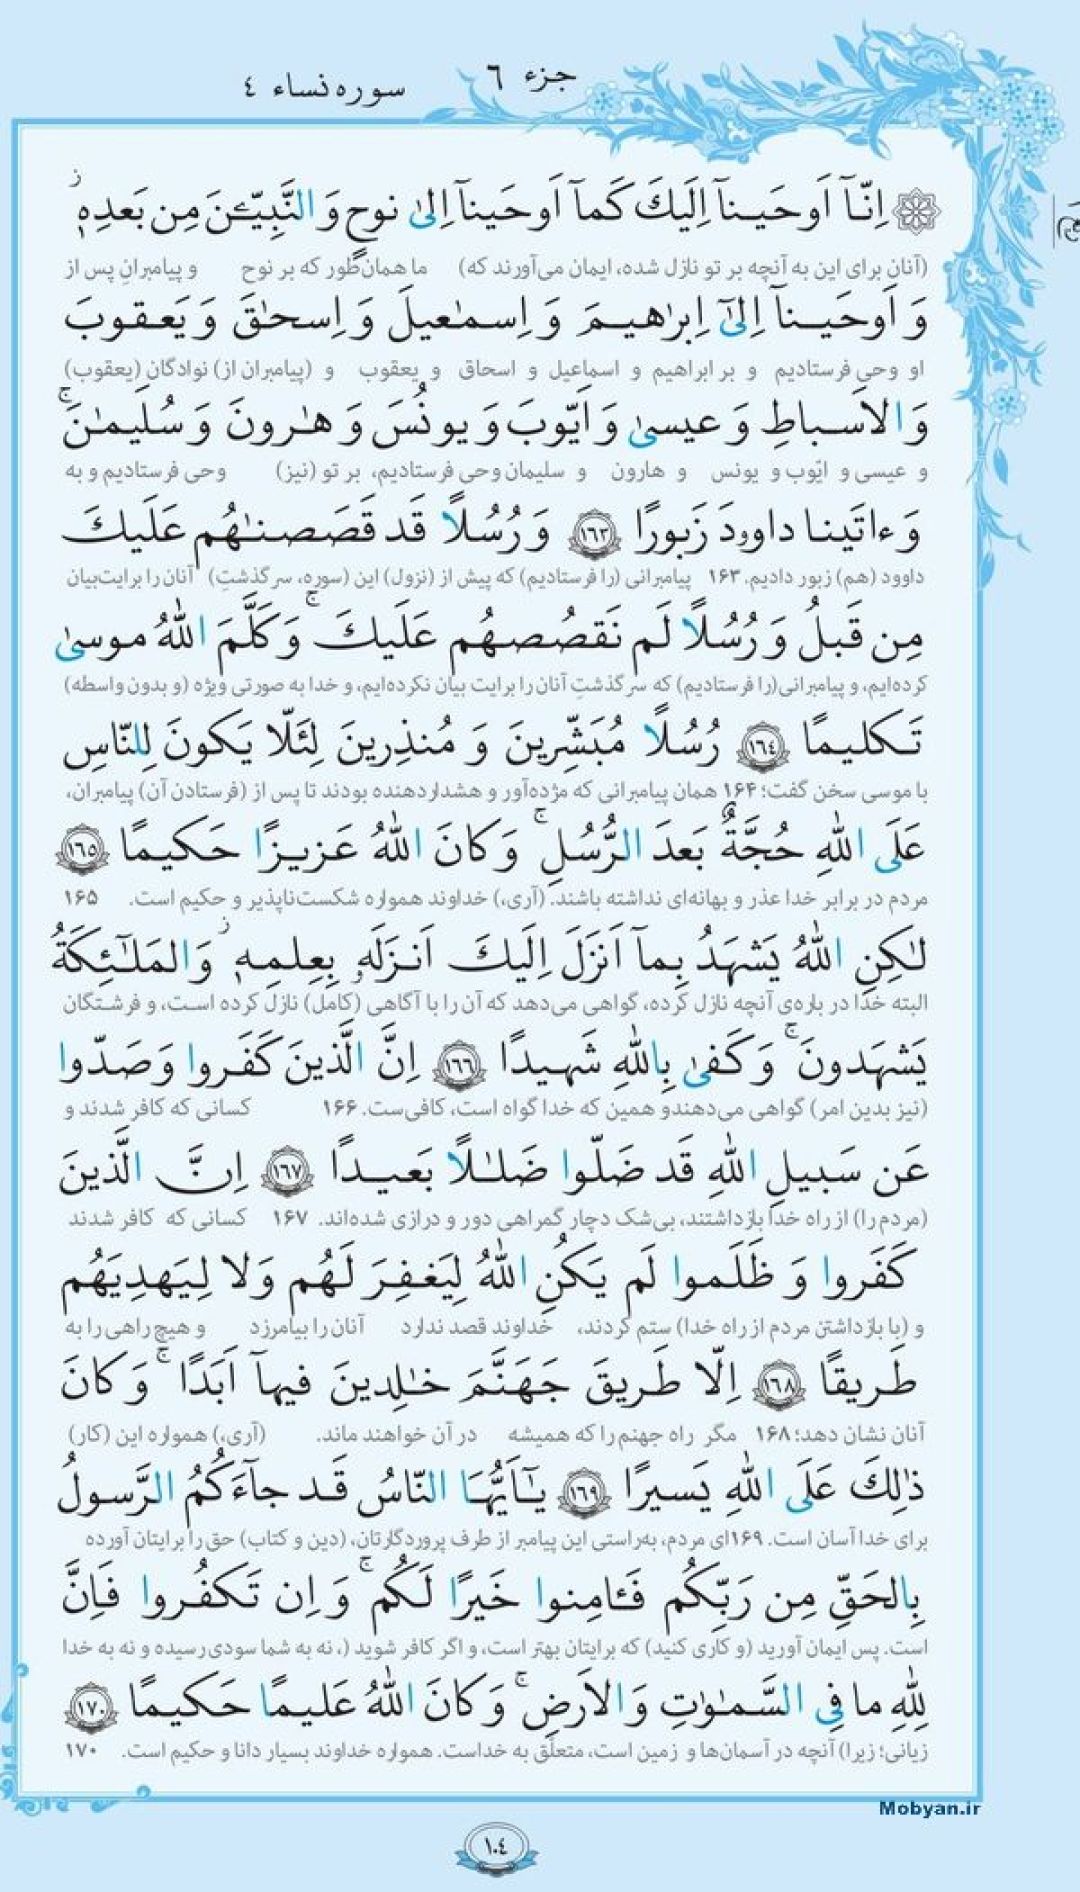 جزء ٦
سوره نساء ٤
اِنّآ اَوحَينآ اِلَيكَ كَمآ اَوحَينآ اِلىٰ نوحٍ وَ النَّبِيّـۧنَ مِن بَعدِهٖ ۚ
(آنان برای این به آنچه بر تو نازل شده، ایمان می‌آورند که) ما همان‌طور که بر نوح و پیامبرانِ پس از
وَ اَوحَينآ اِلىٰٓ اِبرٰهيمَ وَ اِسمٰعيلَ وَ اِسحٰقَ وَ يَعقوبَ
او وحی فرستادیم و بر ابراهیم و اسماعیل و اسحاق و یعقوب و (پیامبران از) نوادگانِ (یعقوب)
وَ الاَسباطِ وَ عيسىٰ وَ اَيّوبَ وَ يونُسَ وَ هٰرونَ وَ سُلَيمٰنَ ۚ
و عیسی و ایّوب و یونس و هارون و سلیمان وحی فرستادیم، بر تو (نیز) وحی فرستادیم و به
وَ ءاتَينا داوۥدَ زَبورًا ١٦٣ وَ رُسُلًا قَد قَصَصنٰهُم عَلَيكَ
داوود (هم) زبور دادیم. ۱۶۳ پیامبرانی (را فرستادیم) که پیش از (نزول) این (سوره، سرگذشتِ) آنان را برایت‌بیان
مِن قَبلُ وَ رُسُلًا لَم نَقصُصهُم عَلَيكَ ۚ وَ كَلَّمَ اللهُ موسىٰ
کرده‌ایم، و پیامبرانی(را فرستادیم) که سرگذشتِ آنان را برایت بیان نکرده‌ایم، و خدا به صورتی ویژه (و بدون واسطه)
تَكليمًا ١٦٤ رُسُلًا مُبَشِّرينَ وَ مُنذِرينَ لِئَلّا يَكونَ لِلنّاسِ
با موسی سخن گفت؛ ۱۶۴ همان پیامبرانی که مژده‌آور و هشداردهنده بودند تا پس از (فرستادن آن) پیامبران،
عَلَى اللهِ حُجَّةٌ بَعدَ الرُّسُلِ ۚ وَ كانَ اللهُ عَزيزًا حَكيمًا ١٦٥
مردم در برابر خدا عذر و بهانه‌ای نداشته باشند. (آری،) خداوند همواره شکست‌ناپذیر و حکیم است. ۱۶۵
لٰكِنِ اللهُ يَشهَدُ بِمآ اَنزَلَ اِلَيكَ اَنزَلَهۥ بِعِلمِهٖ ۖ وَ المَلٰٓئِكَةُ
البته خدا در باره‌ی آنچه نازل کرده، گواهی می‌دهد که آن را با آگاهی (کامل) نازل کرده است، و فرشتگان
يَشهَدونَ ۚ وَ كَفىٰ بِاللهِ شَهيدًا ١٦٦ اِنَّ الَّذينَ كَفَروا وَ صَدّوا
(نیز بدین امر) گواهی می‌دهندو همین که خدا گواه است، کافی‌ست. ۱۶۶ کسانی که کافر شدند و
عَن سَبيلِ اللهِ قَد ضَلّوا ضَلٰلًا بَعيدًا ١٦٧ اِنَّ الَّذينَ
(مردم را) از راه خدا بازداشتند، بی‌شک دچار گمراهی دور و درازی شده‌اند. ۱۶۷ کسانی که کافر شدند
كَفَروا وَ ظَلَموا لَم يَكُنِ اللهُ لِيَغفِرَ لَهُم وَلا لِيَهدِيَهُم
و (با بازداشتن مردم از راه خدا) ستم کردند، خداوند قصد ندارد آنان را بیامرزد و هیچ راهی را به
طَريقًا ١٦٨ اِلّا طَريقَ جَهَنَّمَ خٰلِدينَ فيهآ اَبَدًا ۚ وَ كانَ
آنان نشان دهد؛ ۱۶۸ مگر راه جهنم را که همیشه در آن خواهند ماند. (آری،) همواره این (کار)
ذٰلِكَ عَلَى اللهِ يَسيرًا ١٦٩ يٰٓاَيُّهَا النّاسُ قَد جآءَكُمُ الرَّسولُ
برای خدا آسان است. ۱۶۹ای مردم، به‌راستی این پیامبر از طرف پروردگارتان، (دین و کتاب) حق را برایتان آورده
بِالحَقِّ مِن رَبِّكُم فَـٔامِنوا خَيرًا لَكُم ۚ وَ اِن تَكفُروا فَاِنَّ
است. پس ایمان آورید (و کاری کنید) که برایتان بهتر است، و اگر کافر شوید (، نه به شما سودی رسیده و نه به خدا
لِلّٰهِ ما فِى السَّمٰوٰتِ وَ الاَرضِ ۚ وَ كانَ اللهُ عَليمًا حَكيمًا ١٧٠
زیانی؛ زیرا) آنچه در آسمان‌ها و زمین است، متعلّق به خداست. همواره خداوند بسیار دانا و حکیم است. ۱۷۰
Mobyan.ir
١٠٤